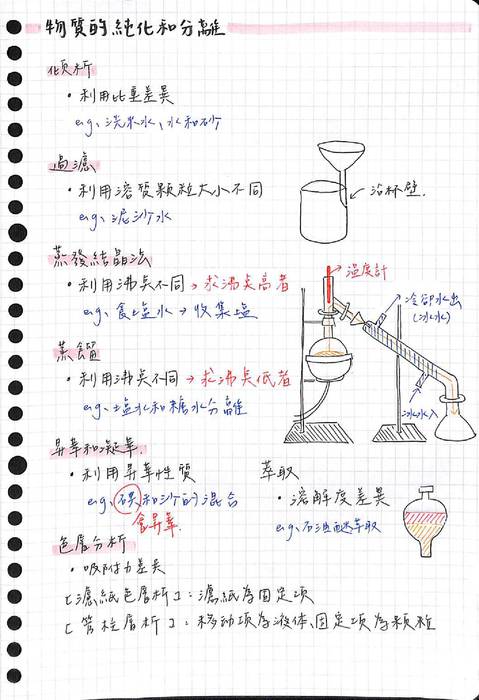 物質的純化和分離
傾析
・利用比重差異
e.g. 洗米水、水和砂
過濾
・利用溶質顆粒大小不同
e.g. 泥沙水
沿杯壁.
蒸發結晶法
・利用沸點不同→求沸點高者
e.g. 食塩水→收集塩
溫度計
冷卻水出
(冰水)
冰水入
蒸餾
・利用沸點不同→求沸點低者
e.g. 塩水和糖水分離
昇華和凝華.
・利用昇華性質
e.g. 碘和沙的混合
會昇華.
萃取
・溶解度差異
e.g. 石油醚萃取
色層分析
・吸附力差異
[濾紙色層析]:濾紙為固定項
[管柱層析]:移動項為液体、固定項為顆粒